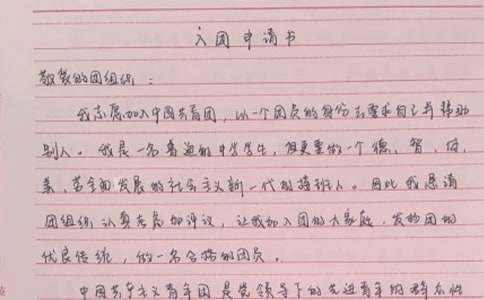 入团申请书
敬爱的团组织：
我志愿加入中国共青团，以一个团员的身份去要求自己与帮助
别人。我是一名普通的中学学生，但更要做一个德，智，体，
美，劳全面发展的社会主义新一代的接班人。因此我恳请
团组织认真考虑和评议，让我加入团的大家庭，发扬团的
优良传统，做一名合格的团员。
中国共产主义青年团是党领导下的先进青年的群众性